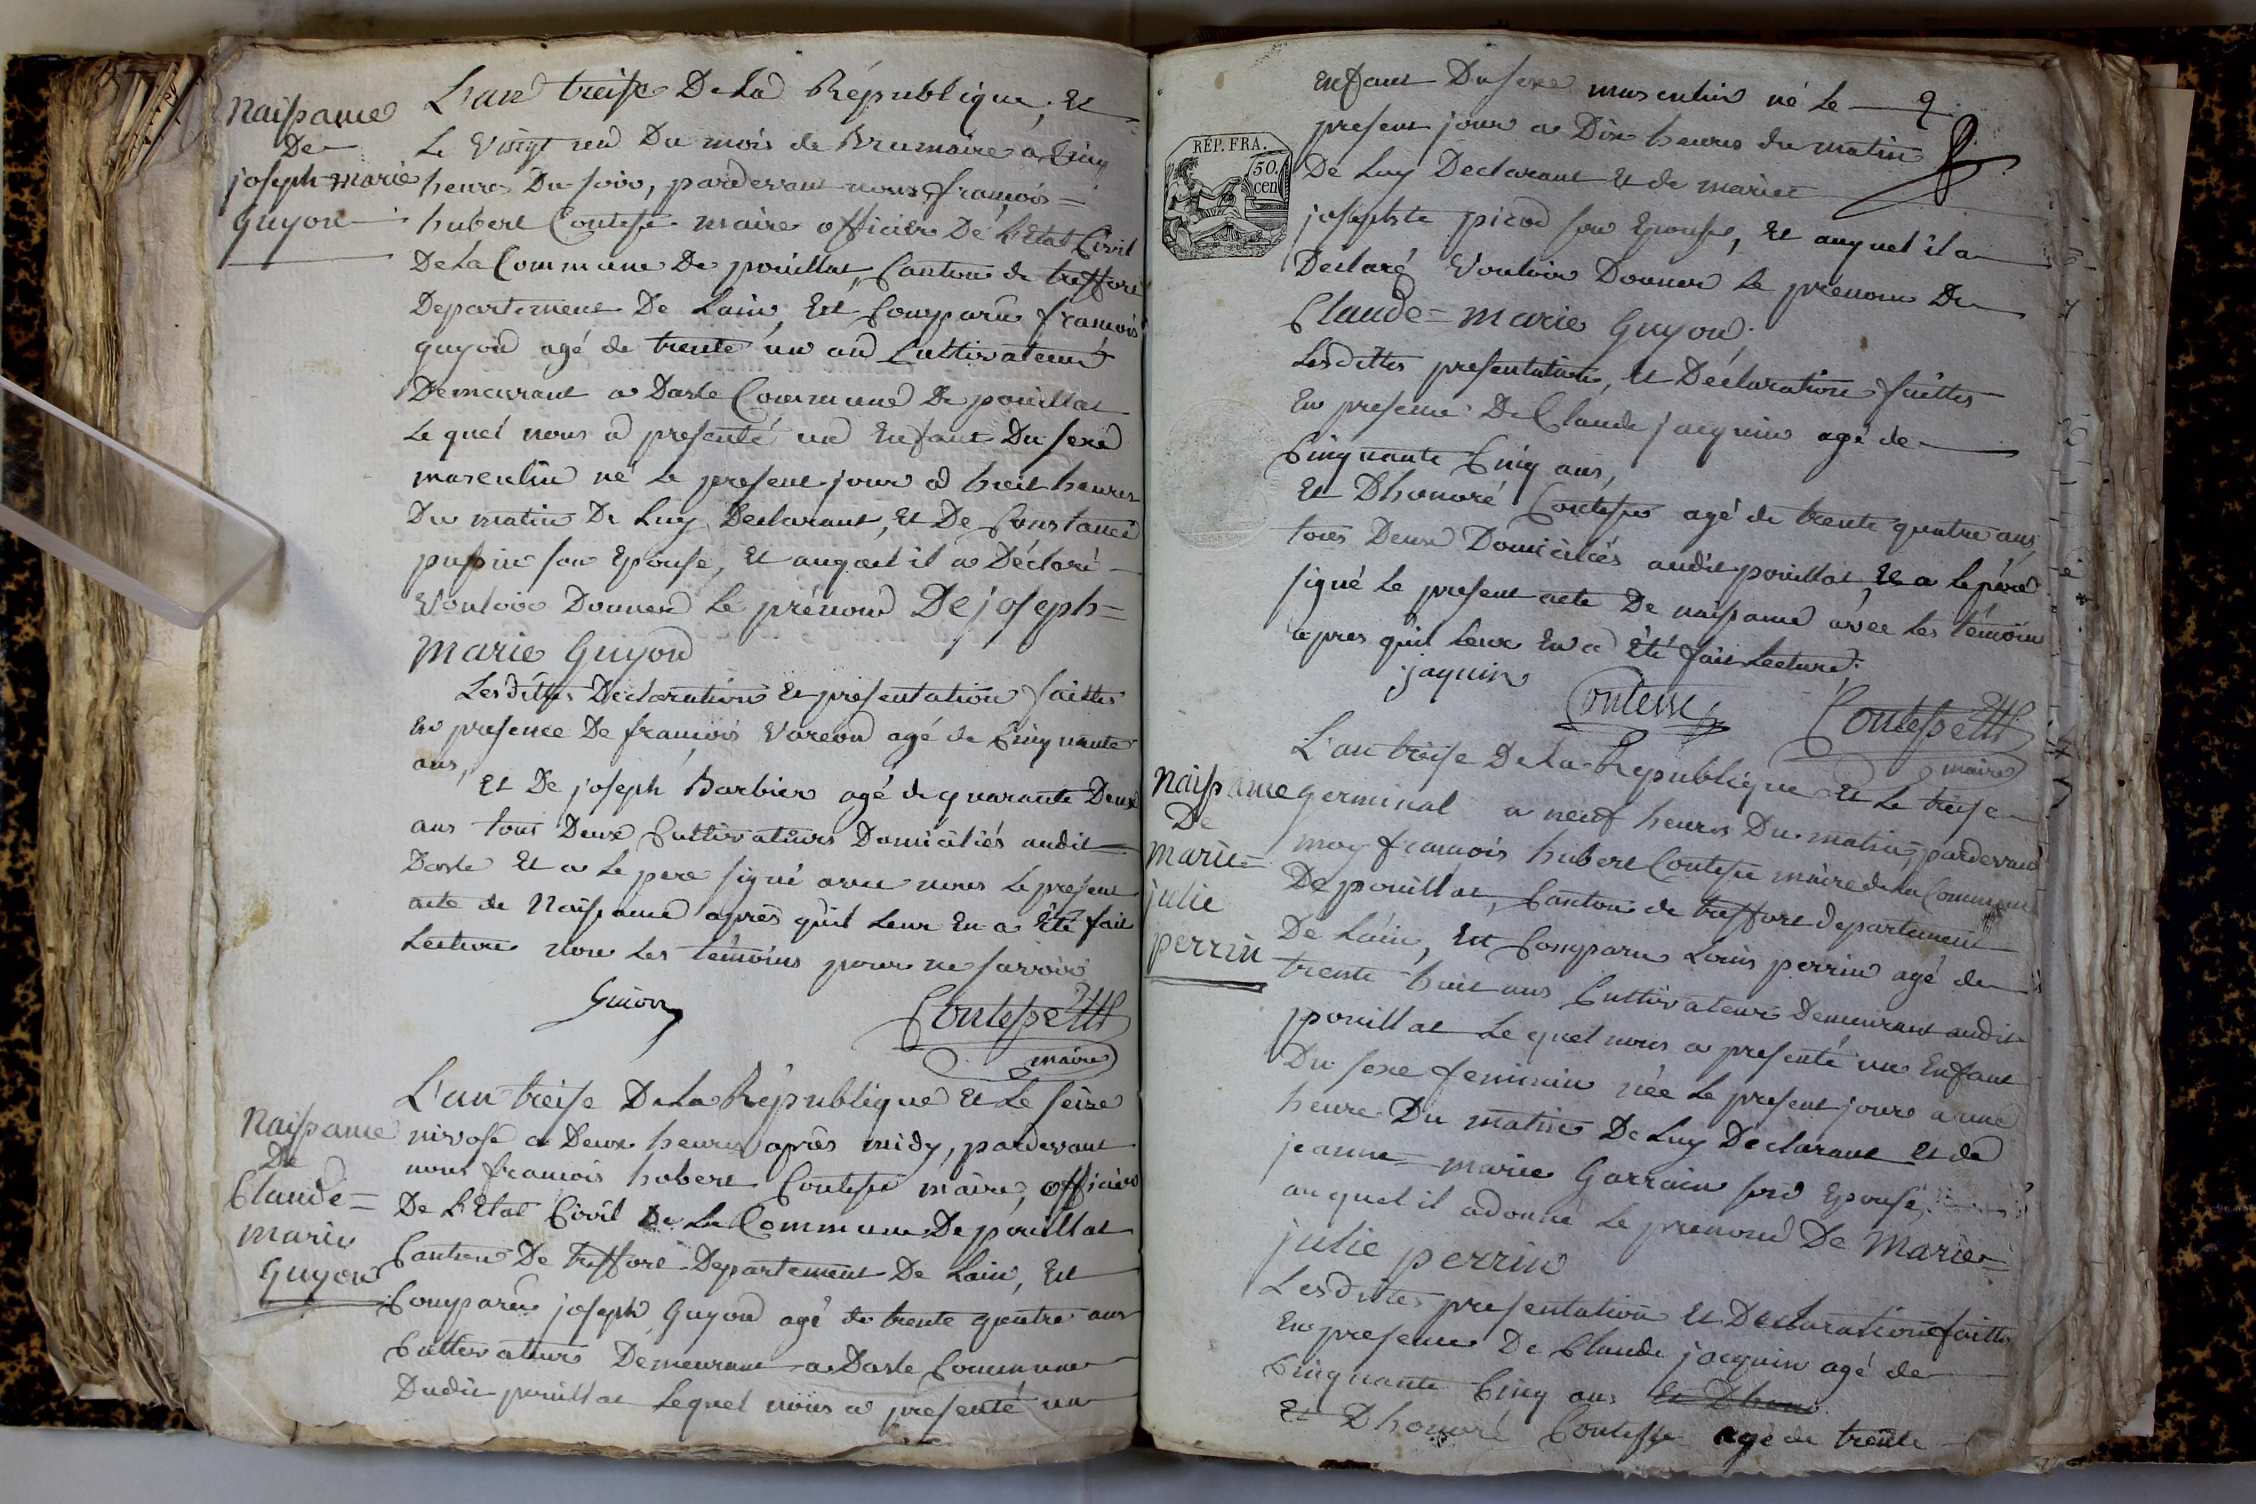 Naissance
De
joseph-marie
Guyon
L'an treise De la République, Et
Le Vingt un Du mois de Brumaire a Cinq
heures Du soir, pardevant nous françois=
hubert Contesse maire officier De L'Etat Civil
De La Commune De pouillat, Canton de treffort
Departement De Lain, Est Comparu françois
guyon agé de trente un an Cultivateur
Demeurant a Dasle Commune De pouillat
Le quel nous a presenté un Enfant Du sexe
masculin né Le present jour a huit heures
Du matin De Luy Declarant, Et De Constance
pussin son Epouse, Et auquel il a Déclaré
Vouloir Donner Le prénom De joseph=
Marie Guyon
Lesdittes Declaration Et presentation faittes
En presence De françois Vareon agé de Cinquante
ans,
Et De joseph Barbier agé de quarante Deux
ans tous Deux Cultivateurs Domiciliés audit
Dasle Et a Le pere signé avec nous Le present
acte de Naissance après qu'il Leur En a Eté fait
Lecture non Les témoins pour ne savoir
Guion
Contesse
maire
Naissance
De
Claude=
marie
Guyon
L'an treise De La République Et Le seize
nivose a Deux heures après midy, pardevant
nous françois hubert Contesse maire, officier
De L'Etat Civil De La Commune De pouillat
Canton De treffort Departement De Lain, Est
Comparu joseph Guyon agé de trente quatre ans
Cultivateur Demeurant a Dasle Commune
Dudit pouillat Lequel nous a presenté un
Enfant Du sexe masculin né Le 9
present jour a Dix heures du matin
De Luy Declarant Et de marie
josephte picod son Epouse, Et auquel il a
Déclaré Vouloir Donner Le prénom De
Claude=Marie Guyon.
Lesdittes presentation, Et Déclaration faittes
En presence De Claude jacquin agé de
Cinquante Cinq ans,
Et Dhonoré Contesse agé de trente quatre ans
tous Deux Domiciliés audit pouillat, Et a Le pére
signé Le present acte De naissance avec Les témoins
apres qu'il Leur En a Été fait Lecture;
RÉP. FRA.
50.
cen
jaquin
Contesse
Contesse
maire
Naissance
De
Marie=
julie
perrin
L'an treise De La République Et Le treise
germinal a neuf heures Du matin, pardevant
moy françois hubert Contesse maire de La Commune
De pouillat, Canton de treffort departement
De Lain, Est Comparu Louis perrin agé de
trente huit ans Cultivateur Demeurant audit
pouillat Le quel nous a presenté un Enfant
Du sexe feminin née Le present jour a une
heure Du matin De Luy Declarant Et de
jeanne-marie Garrain son Epouse,
auquel il adonné Le prenom De Marie=
julie perrin
Lesdittes presentation Et Declaration faittes
En presence De Claude jacquin agé de
Cinquante Cinq ans Et Dhono
Et Dhonoré Contesse agé de trente